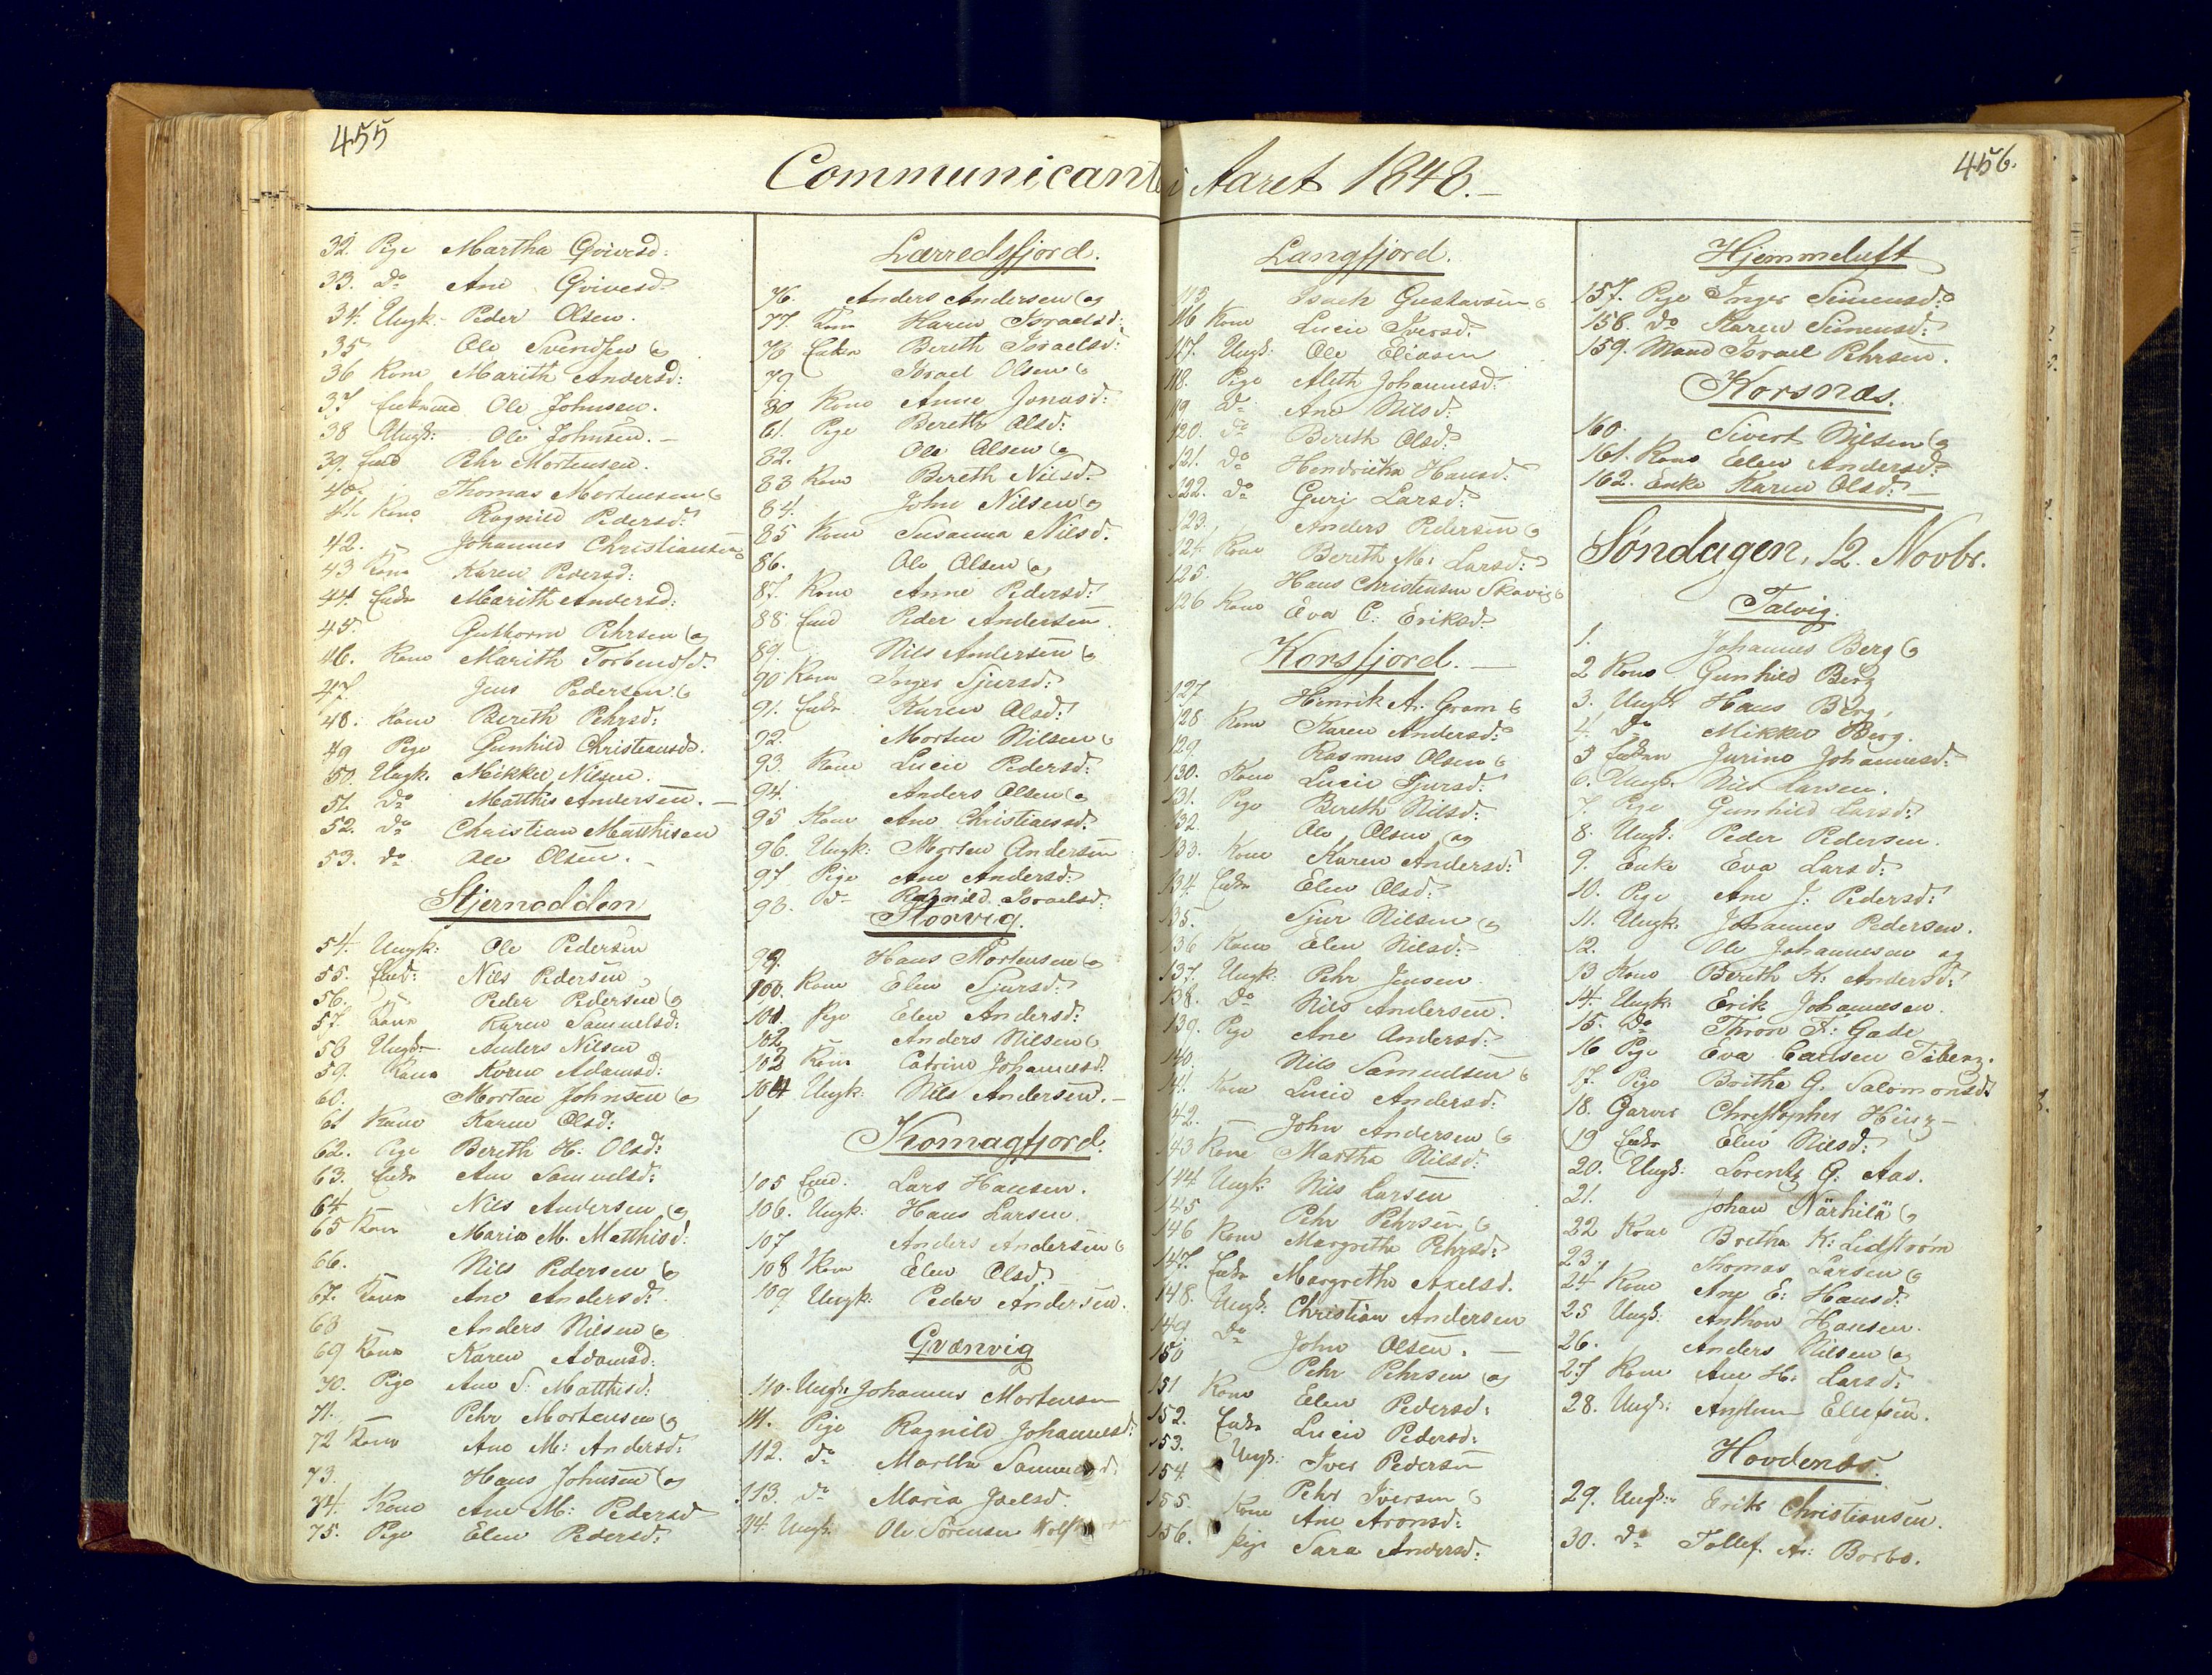 455
Communicant
32. Pige Martha Qvivesd:
33. do Ane Qvivesd:
34. Ungk: Peder Olsen.
35 Ole Svendsen og
36 Kone Marith Andersd:
37 Enkmand Ole Johnsen.
38 Ungk: Ole Johnsen. -
39. Pehr Mortensen.
40. Thomas Mortensen og
41. Kone Ragnild Pedersd:
42. Johannes Christiansen
43 Kone Karen Pedersd:
44. Enke Marith Andersd:
45. Guthorm Pehrsen og
46. Kone Marith Torbends:
47. Jens Pedersen og
48. Kone Bereth Pehrsd:
49 Pige Gunhild Christiansd.
50. Ungk. Mikkel Nilsen.
51. do Matthis Andersen. -
52. do Christian Matthisen
53. do Ole Olsen. -
Stjernodden
54. Ungk: Ole Pedersen
55. Nils Pedersen
56. Peder Pedersen og
57. Kone Karen Samuelsd:
58 Ungk: Anders Nilsen
59. Kone Karen Adamsd:
60. Morten Johnsen og
61 Kone Karen Olsd:
62. Pige Bereth H: Olsd:
63. Enke Ane Samuelsd:
64 Nils Andersen og
65 Kone Maria M. Matthisd:
66. Nils Pedersen og
67. Kone Ane Andersd:
68 Anders Nilsen og
69 Kone Karen Adamsd:
70. Pige Ane S: Matthisd:
71. Pehr Mortensen og
72 Kone Ane M: Andersd:
73. Hans Johnsen og
74. Kone Ane M: Pedersd
75. Pige Elen Pedersd:
Lærredsfjord.
76. Anders Andersen og
77. Kone Karen Israelsd:
78 Enke Bereth Israelsd:
79 Israel Olsen og
80 Kone Anne Jonasd:
81. Pige Bereth Olsd:
82. Ole Olsen og
83 Kone Bereth Nilsd:
84. John Nilsen og
85 Kone Susanna Nilsd.
86. Ole Olsen og
87. Kone Anne Pedersd:
88. Peder Andersen
89. Nils Andersen og
90 Kone Inger Sjursd:
91. Enke Karen Olsd:
92. Morten Nilsen og
93. Kone Lucie Pedersd:
94. Anders Olsen og
95 Kone Ane Christiansd:
96. Ungk: Morten Andersen
97 Pige Ane Andersd:
98. do Ragnild Israelsd:
Storvig.
99. Hans Mortensen og
100. Kone Elen Sjursd:
101. Pige Elen Andersd:
102 Anders Nilsen og
103 Kone Catrine Johannesd:
104 Ungk: Nils Andersen. -
Komagfjord.
105 Lars Hansen.
106. Ungk: Hans Larsen.
107 Anders Andersen og
108 Kone Elen Olsd:
109 Ungk: Peder Andersen.
Qvænvig
110. Ungk: Johannes Mortensen
111. Pige Ragnild Johannesd:
112. do Martha
113. do Maria Joelsd.
114. Ungk: Ole Sørensen
i Aaret 1848. -
456.
Langfjord.
115 Isach Gustavsen og
116 Kone Lucie Iversd:
117. Ungk: Ole Eliasen
118. Pige Aleth Johannesd:
119. do Ane Nilsd:
120. do Bereth Olsd:
121. do Hendricka Hansd:
122. do Guri Larsd:
123. Anders Pedersen og
124 Kone Bereth M: Larsd:
125. Hans Christensen Skavig og
126 Kone Eva C: Eriksd:
Korsfjord. -
127 Hinrik A. Gram og
128 Kone Karen Andersd:
129 Rasmus Olsen og
130. Kone Lucie Sjursd:
131. Pige Bereth Nilsd:
132 Ole Olsen og
133. Kone Karen Andersd:
134. Enke Elen Olsd:
135. Sjur Nilsen og
136 Kone Elen Nilsd:
137. Ungk: Pehr Jensen
138. do Nils Andersen.
139. Pige Ane Andersd:
140. Nils Samuelsen og
141. Kone Lucie Andersd:
142. John Andersen og
143 Kone Martha Nilsd:
144 Ungk: Nils Larsen
145 Pehr Pehrsen og
146 Kone Margretha Pehrsd:
147. Enke Margretha Axelsd.
148. Ungk: Christian Andersen
149 do John Olsen. -
150 Pehr Pehrsen og
151 Kone Elen Pedersd:
152. Enke Lucie Pedersd:
153. Ungk: Iver Pedersen
154. Pehr Iversen og
155. Kone Ane Aronsd:
156. Pige Sara Andersd:
Hjemmeluft
157. Pige Inger Simensd:
158. do Karen Simensd:
159. Mand Israel Pehrsen.
Korsnæs.
160. Sivert Nilsen og
161. Kone Elen Andersd:
162. Enke Karen Olsd: -
Søndagen, 12. Novbr.
Talvig.
1. Johannes Berg og
2 Kone Gunhild Berg
3. Ungk Hans Berg.
4. do Mikkel Berg.
5 Enke Jurine Johannesd:
6. Ungk. Nils Larsen.
7. Pige Gunhild Larsd:
8. Ungk: Peder Pedersen.
9. Enke Eva Larsd:
10. Pige Ane J: Pedersd:
11. Ungk: Johannes Pedersen.
12. Ole Johannesen og
13 Kone Bereth K: Andersd:
14. Ungk: Erik Johannesen.
15. do Thron F: Gade
16 Pige Eva
17. Pige Britha G. Salomonsd:
18. Garver Christopher
19 Enke Elen Nilsd:
20. Ungk: Lorentz G: Aas.
21. Johan Närhilä og
22 Kone Bretha K: Lidstrøm
23. Thomas Larsen og
24 Kone Ane E: Hansd:
25 Ungk: Anthon Hansen.
26. Anders Nilsen og
27 Kone Ane H: Larsd:
28. Ungk: Ellefsen.
Hovdenæs.
29. Ungk: Erik Christiansen.
30. do Tollef. A: